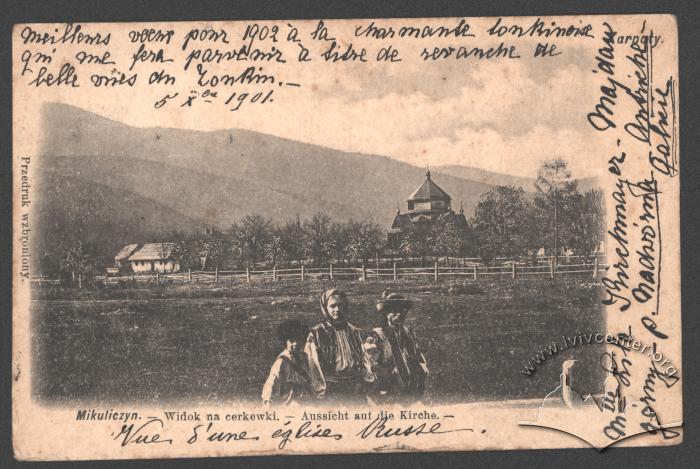 Meilleurs vœux pour 1902 à la charmante tonkinoise
qui me fera parvenir à titre de revanche de
belle vues du Tonkin.—
5 Xbre 1901.
Karpaty.
Przedruk wzbroniony.
Kirchmayer - Majdan
górny - p. Nadwórna Autriche
Galicie
www.lvivcenter.org
Mikuliczyn. — Widok na cerkewki. — Aussicht auf die Kirche. —
Vue d'une église Russe.